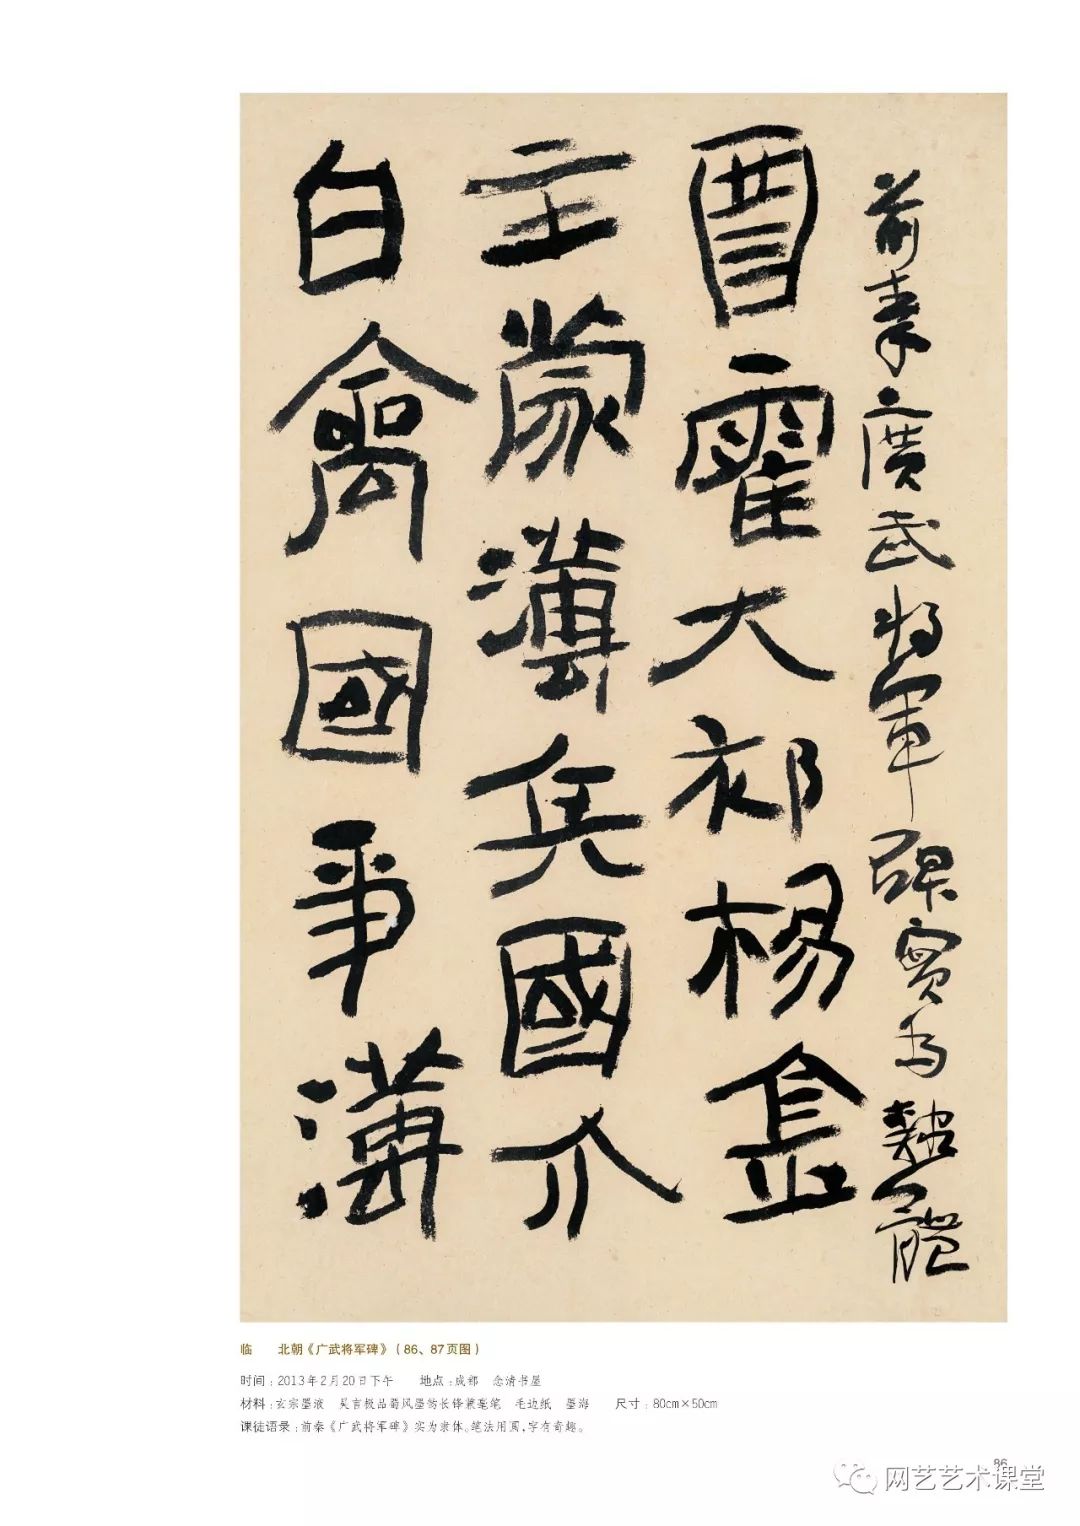 前秦广武将军碑实为隶体
酉霍大祁杨金
主蒙薄兵国介
白禽國事薄
临 北朝《广武将军碑》（86、87页图）
时间：2013年2月20日下午 地点：成都 念清书屋
材料：玄宗墨液 吴言极品蜀风墨韵长锋兼毫笔 毛边纸 墨海 尺寸：80cm×50cm
课徒语录：前秦《广武将军碑》实为隶体。笔法用圆，字有奇趣。
86
网艺艺术课堂